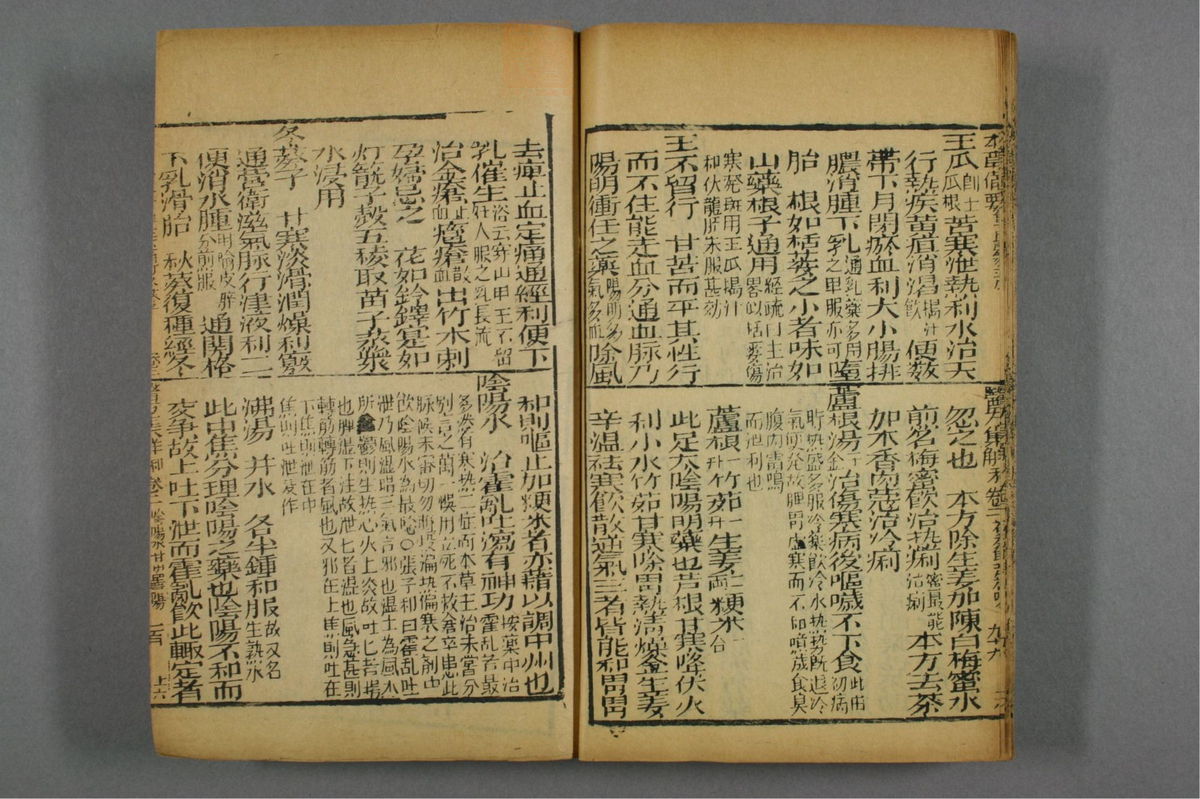 本草備要
王瓜 即土瓜根 苦寒泄熱利水治天
行熱疾黃疸消渴 搗汁飲 便數
帶下月閉瘀血利大小腸排
膿消腫下乳 通乳藥多用之單服亦可 墮
胎 根如栝蔞之小者味如
山藥根子通用 經疏曰主治畧似栝蔞傷
寒發斑用王瓜搗汁
和伏龍肝末服甚効
王不留行 甘苦而平其性行
而不住能走血分通血脉乃
陽明衝任之藥 陽明多氣多血 除風
醫方集解 和 卷二
忽之也 本方除生姜加陳白梅蜜水
煎名梅蜜飲治熱痢 蜜最能治痢 本方去茶
加木香肉蔻治冷痢
蘆根湯 千金 治傷寒病後嘔噦不下食 此由初病
時熱盛多服冷藥飲冷水熱勢既退冷
氣便發故脾胃虛寒而不和噫噦食臭
腹內雷鳴
而泄利也
蘆根 一升 竹茹 一升 生姜 二兩 粳米 一合
此足太陰陽明藥也芦根甘寒降伏火
利小水竹茹甘寒除胃熱清燥金生姜
辛温祛寒飲散逆氣三者皆能和胃胃
去痺止血定痛通經利便下
乳催生 俗云穿山甲王不留婦人服之乳長流
治金瘡 止血 癰瘡 散血 出竹木刺
孕婦忌之 花如鈴鐸實如
灯籠子殼五稜取苗子蒸漿
水浸用
冬葵子 甘寒淡滑潤燥利竅
通營衛滋氣脉行津液利二
便消水腫 用榆皮等分煎服 通關格
下乳滑胎 秋葵復種經冬
和則嘔止加粳米者亦藉以調中州也
陰陽水 治霍亂吐瀉有神功 按藥中治霍亂者最
多然有寒熱二症而本草主治未嘗分
別言之萬一悞用立死不救倉卒患此
脉候未審切勿輕投偏熱偏寒之劑唯
飲陰陽水為最穩○張子和曰霍亂吐
泄乃風濕暍三氣合邪也濕土為風木
所尅鬱則生熱心火上炎故吐吐者暍
也脾濕下注故泄泄者濕也風急甚則
轉筋轉筋者風也又邪在上焦則吐在
下焦則泄在中
焦則吐泄交作
沸湯 井水 各半鍾和服 故又名生熟水
此中焦分理陰陽之藥也陰陽不和而
交爭故上吐下泄而霍亂飲此輒定者